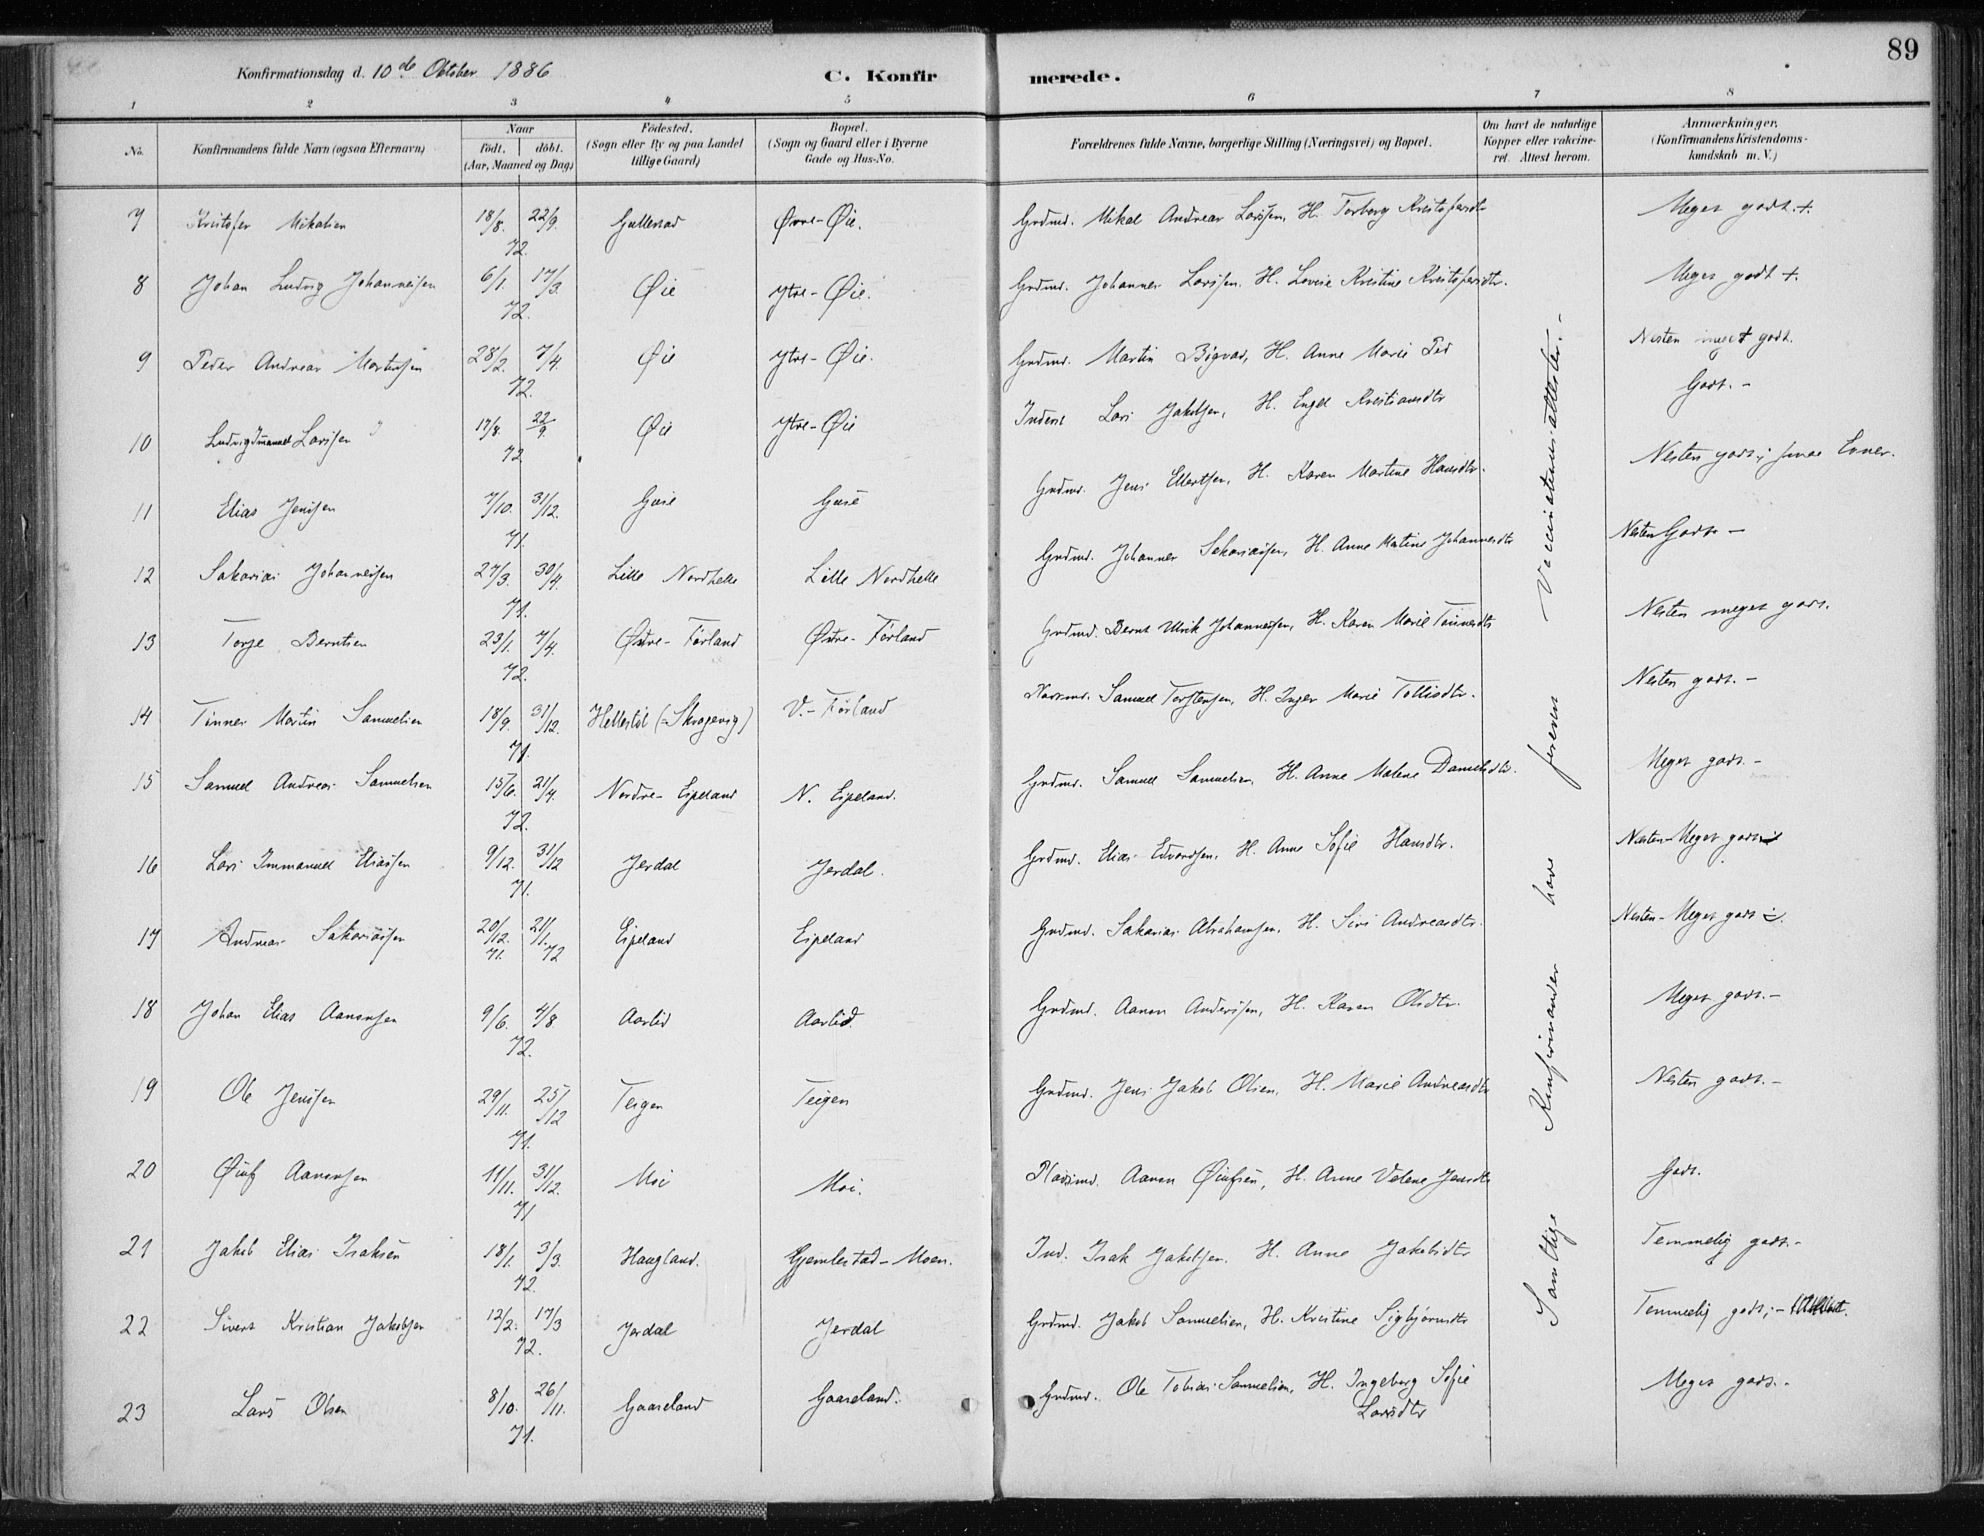 89
Konfirmationsdag d. 10de Oktober 1886
C. Konfirmerede.
1 2 3 4 5 6 7 8
No.
Konfirmandens fulde Navn (ogsaa Efternavn)
Naar
födt. döbt.
(Aar, Maaned og Dag)
Födested.
(Sogn eller By og paa Landet
tillige Gaard)
Bopæl.
(Sogn og Gaard eller i Byerne
Gade og Hus-No.
Forældrenes fulde Navne, borgerlige Stilling (Næringsvei) og Bopæl.
Om havt de naturlige
Kopper eller vakcine-
ret. Attest herom.
Anmærkninger.
(Konfirmandens Kristendoms-
kundskab m. V.)
7 Kristofer Mikalsen 18/8. 22/9. 72. Gullestad Øvre-Øie. Grdmd. Mikal Andreas Larsen, H. Torborg Kristofersdtr Meget godt. +.
8 Johan Ludvig Johannesen 6/1. 17/3. 72. Øie Ytre-Øie. Grdmd. Johannes Larssen. H. Lovise Kristine Kristofersdtr. Meget godt +.
9 Peder Andreas Martinsen 28/2. 7/4. 72. Øie Ytre-Øie. Grdmd. Martin Bøgvad, H. Anne Marie Ped Nesten meget godt.
10 Ludvig Imanuel Larssen 17/8. 22/9. 72 Øie Ytre-Øie Inderst Lars Jakobsen, H. Engel Kristiansdtr Godt. -
11 Elias Jenssen 7/10. 31/12. 71. Guse Guse Grdmd. Jens Ellertsen, H. Karen Martine Hansdtr. Nesten godt; smaa Evner.
12 Sakarias Johannesen 27/3. 30/4. 71. Lille Nordhelle Lille Nordhelle Grdmd. Johannes Sakariassen, H. Anne Matine Johannesdtr Nesten Godt -
13 Torje Berntsen 23/1. 7/4. 72. Østre-Førland Østre-Førland Grdmd. Bernt Ulrik Johannessen, H. Karen Marie Tønnesdtr Nesten meget godt.
14 Tønnes Martin Samuelsen 18/9. 31/12. 71. V.-Førland Samuel Torstensen, H. Inger Marie Tollisdtr. Nesten godt. -
15 Samuel Andreas Samuelsen 15/6. 21/4. 72. Nordre-Eipeland N. Eipeland. Grdmd. Samuel Samuelsen, H. Anne Malene Danielsdtr. Meget godt. -
16 Lars Immanuel Eliassen 9/12. 31/12 71. Jerdal Jerdal. Grdmd. Elias Edvardsen, H. Anne Sofie Hansdtr. Nesten-Meget godt
17 Andreas Sakariassen 20/12. 71. 21/1. 72 Eipeland Eipeland Grdmd. Sakarias Abrahamsen, H. Siri Andreasdtr. Nesten-Meget godt
18 Johan Elias Aanonsen 9/6. 4/8 72. Aarlid Aarlid. Grdmd. Aanon Anderssen, H. Karen Olsdtr. Meget godt. -
19 Ole Jenssen 29/11. 25/12 71. Teigen Teigen Grdmd. Jens Jakob Olsen, H. Marie Andreasdtr Nesten godt. -
20 Øiuf Aanonsen 11/11. 31/12. 71 Moi Moi. Pladsmd. Aanon Øiufsen, H. Anne Velene Jensdtr Godt.
21 Jakob Elias Isaksen 18/1. 3/3. 72. Haugland. Gjemlestad-Moen. Ind. Isak Jakobsen. H. Anne Jakobsdtr Temmelig godt. -
22 Sivert Kristian Jakobsen 12/2. 17/3 72. Jerdal Jerdal Grdmd. Jakob Samuelsen, H. Kristine Sigbjørnsdtr Temmelig godt; -
23 Lars Olsen 8/10. 26/11. 71. Gaaseland Gaaseland. Grdmd. Ole Tobias Samuelsen, H. Ingeborg Sofie
Larsdtr Meget godt. -
Samtlige Konfirmander have foreviist Vaccinationsattester. -